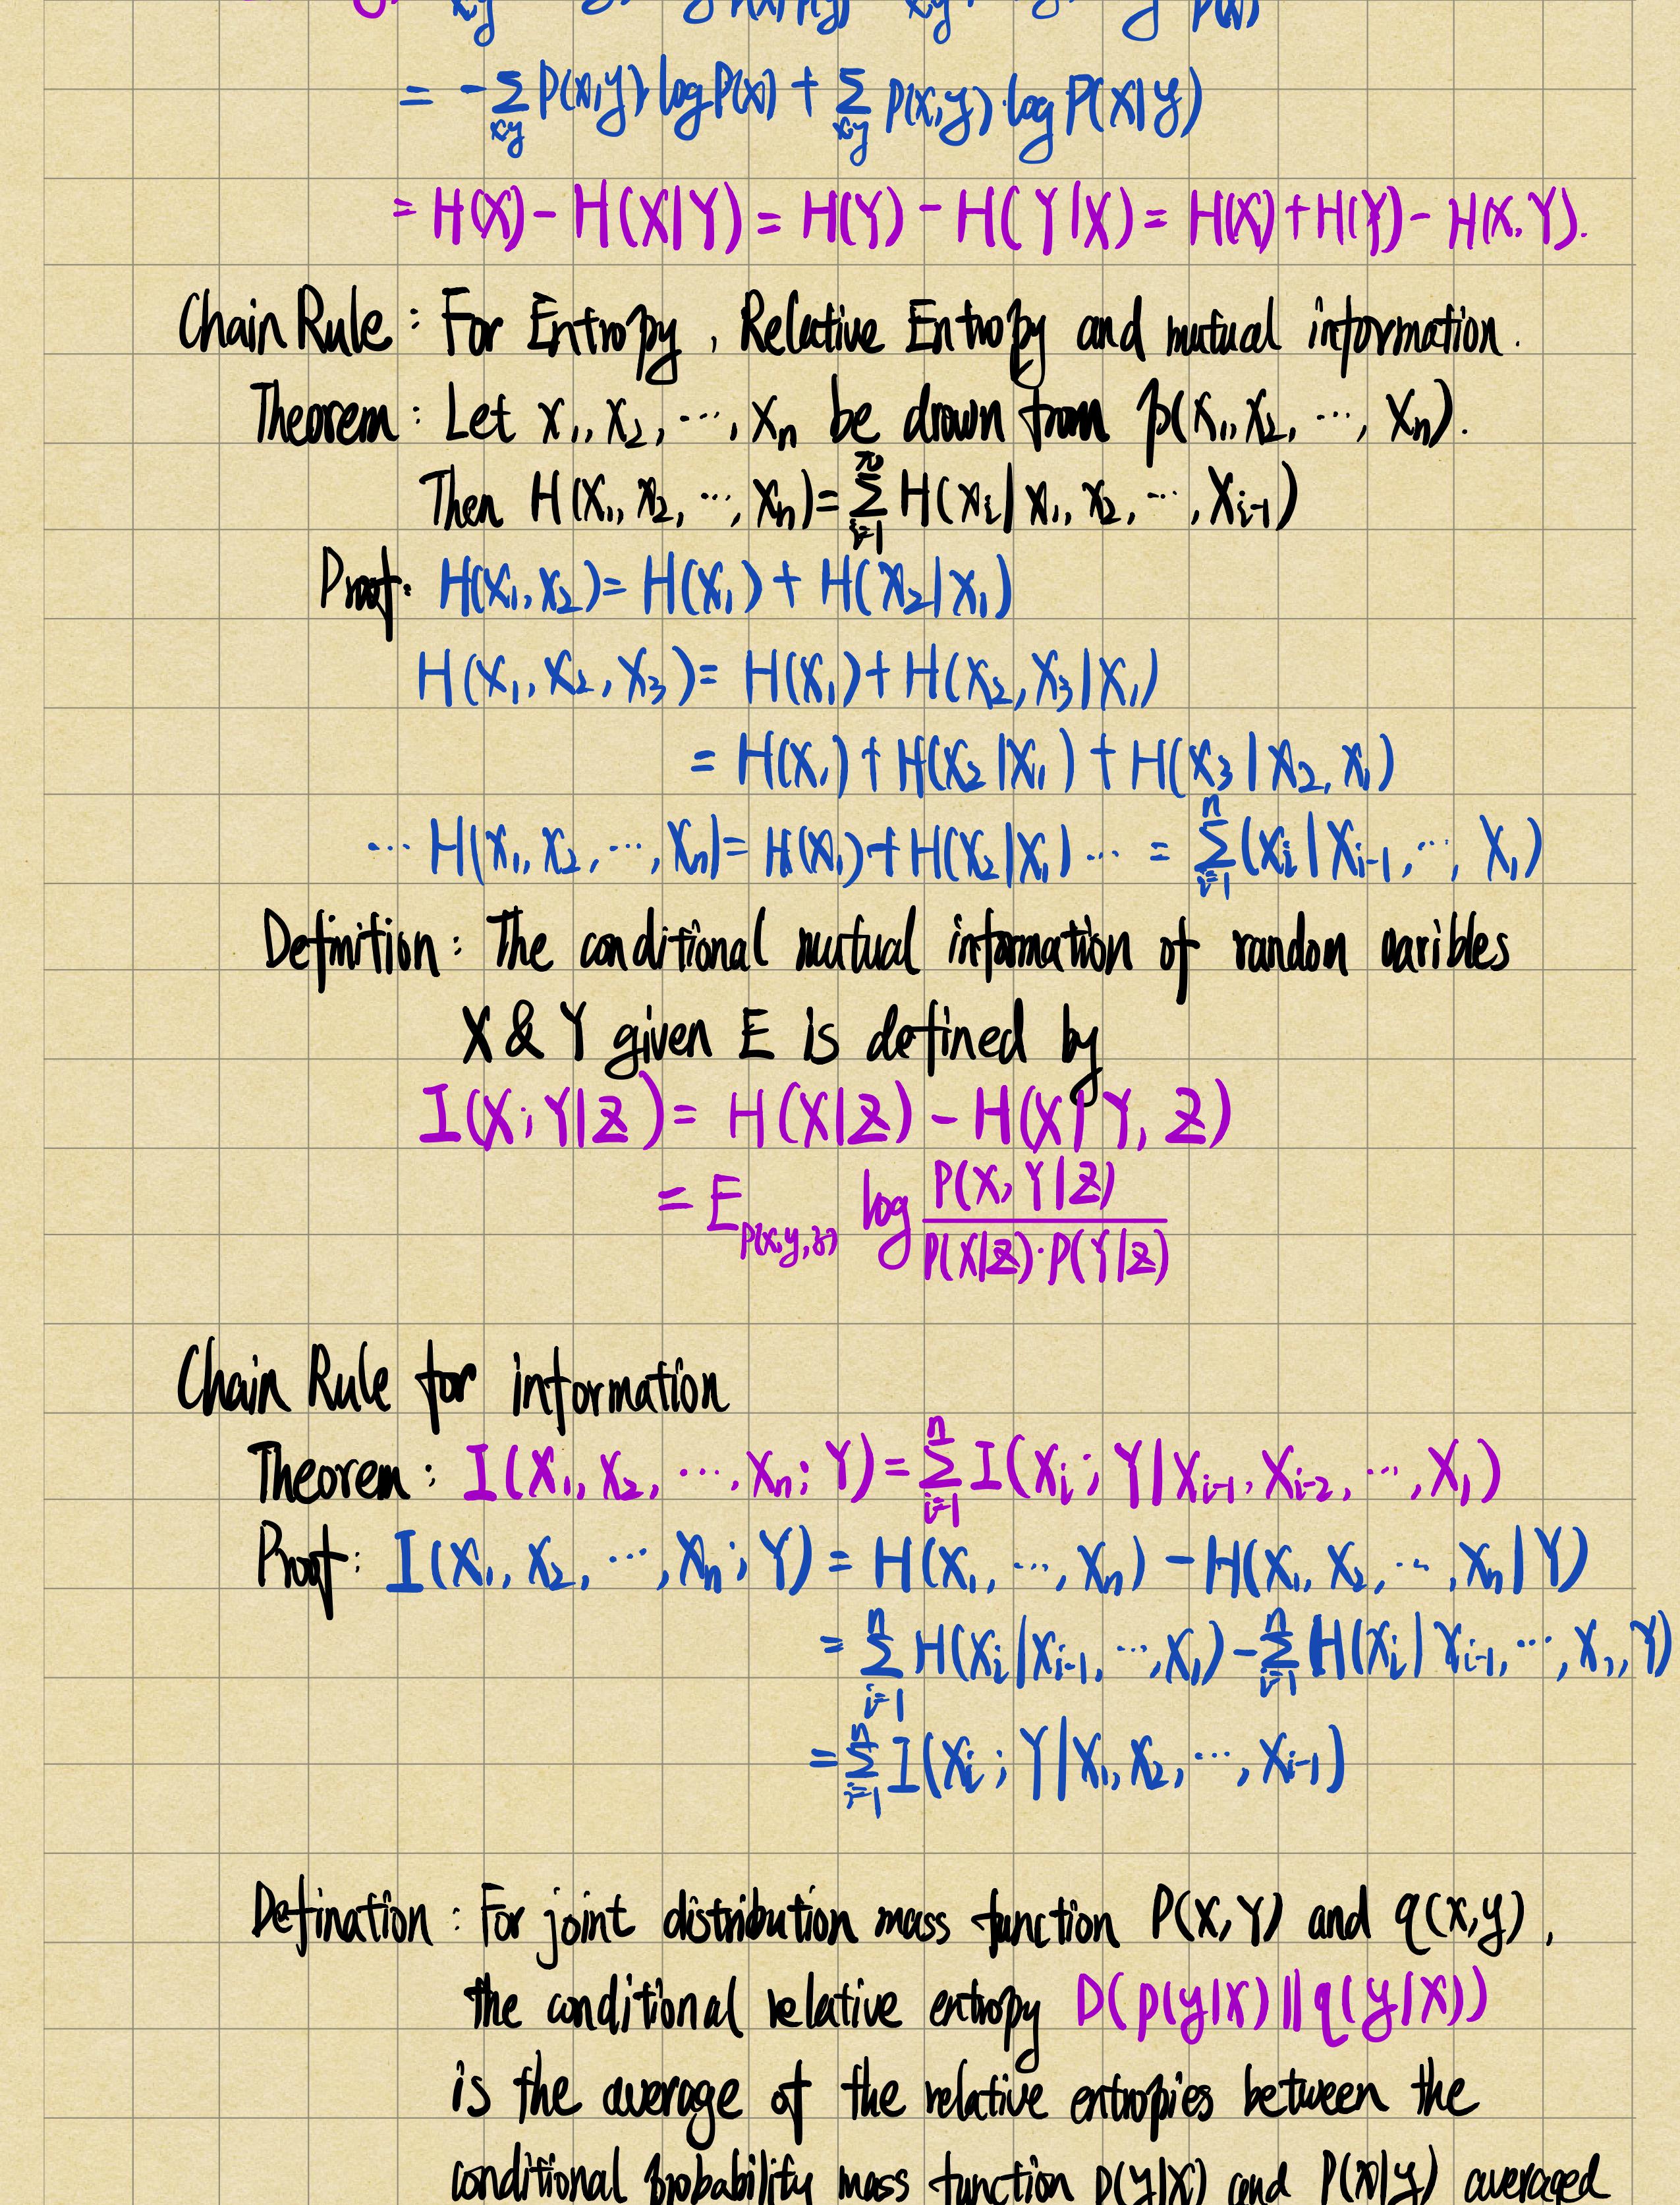 = -∑xy P(x,y) log P(x) + ∑xy p(x,y)·log P(x|y)
= H(X) - H(X|Y) = H(Y) - H(Y|X) = H(X) + H(Y) - H(X,Y).
Chain Rule : For Entropy , Relative Entropy and mutual information.
Theorem : Let X₁, X₂, ···, Xn be drawn from p(X₁, X₂, ···, Xn).
Then H(X₁, X₂, ···, Xn) = ∑ⁿi=1 H(Xi | X₁, X₂, ···, Xi-1)
Proof: H(X₁, X₂) = H(X₁) + H(X₂|X₁)
H(X₁, X₂, X₃) = H(X₁) + H(X₂, X₃|X₁)
= H(X₁) + H(X₂|X₁) + H(X₃|X₂, X₁)
··· H(X₁, X₂, ···, Xn) = H(X₁) + H(X₂|X₁) ··· = ∑ⁿi=1 (Xi | Xi-1, ···, X₁)
Definition : The conditional mutual information of random varibles
X & Y given E is defined by
I(X; Y|Z) = H(X|Z) - H(X|Y, Z)
= E P(x,y,z) log P(X, Y|Z) / P(X|Z)·P(Y|Z)
Chain Rule for information
Theorem : I(X₁, X₂, ···, Xn; Y) = ∑ⁿi=1 I(Xi; Y|Xi-1, Xi-2, ···, X₁)
Proof : I(X₁, X₂, ···, Xn; Y) = H(X₁, ···, Xn) - H(X₁, X₂, ···, Xn|Y)
= ∑ⁿi=1 H(Xi|Xi-1, ···, X₁) - ∑ⁿi=1 H(Xi|Xi-1, ···, X₁, Y)
= ∑ⁿi=1 I(Xi; Y|X₁, X₂, ···, Xi-1)
Defination : For joint distribution mass function P(X,Y) and q(x,y) ,
the conditional relative entropy D(p(y|x) || q(y|x))
is the average of the relative entropies between the
conditional probability mass function p(y|x) and P(x|y) averaged